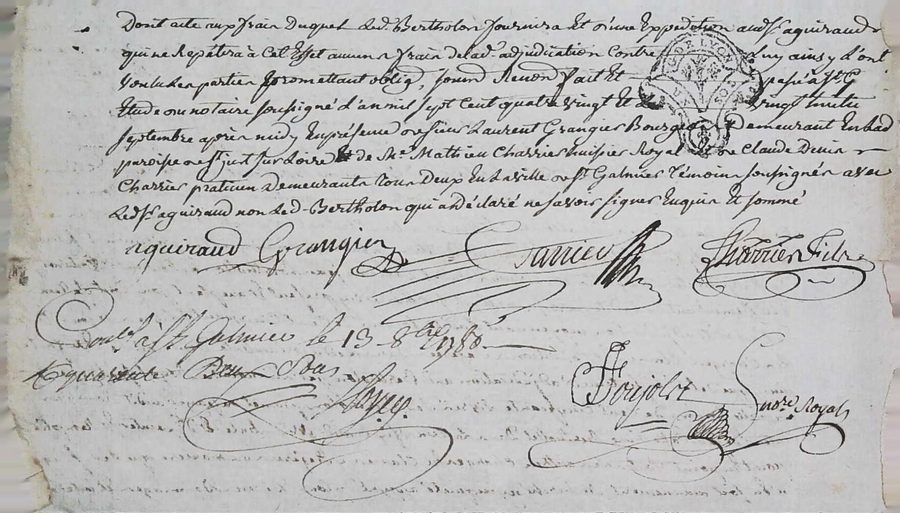 Dont acte aux frais Duquel Led. Bertholon fournira Et d'une Expedition aud. Sr aguiraud
qui ne Repetera à Cet Effet aucuns frais de lad. adjudication Contre Luy ainsy D'ont
voulu Les parties promettant oblig. soum. Renon. fait Et passé à St. G
Etude du notaire soussigné L'an mil sept Cent quatre vingt Et Le vingt huitie
septembre après midy En présence de sieur Laurent Grangier Bourgeois Demeurant En Lad
paroisse de St. just sur Loire Et de Me. Mathieu Charrier huissier Royal Claude Denis
Charrier praticien Demeurants Tous Deux En La ville de St. Galmier Témoins soussignés avec
Led. Sr. aguiraud non Led. Bertholon qui a Déclaré ne savoir signer Enquis Et sommé
GEN LYON
DEUX SOLS
aguiraud Grangier Charrier Charrier Fils
Conlé à St. Galmier le 13 8bre 1780
quarante Sous
Poujolat nore. Royal